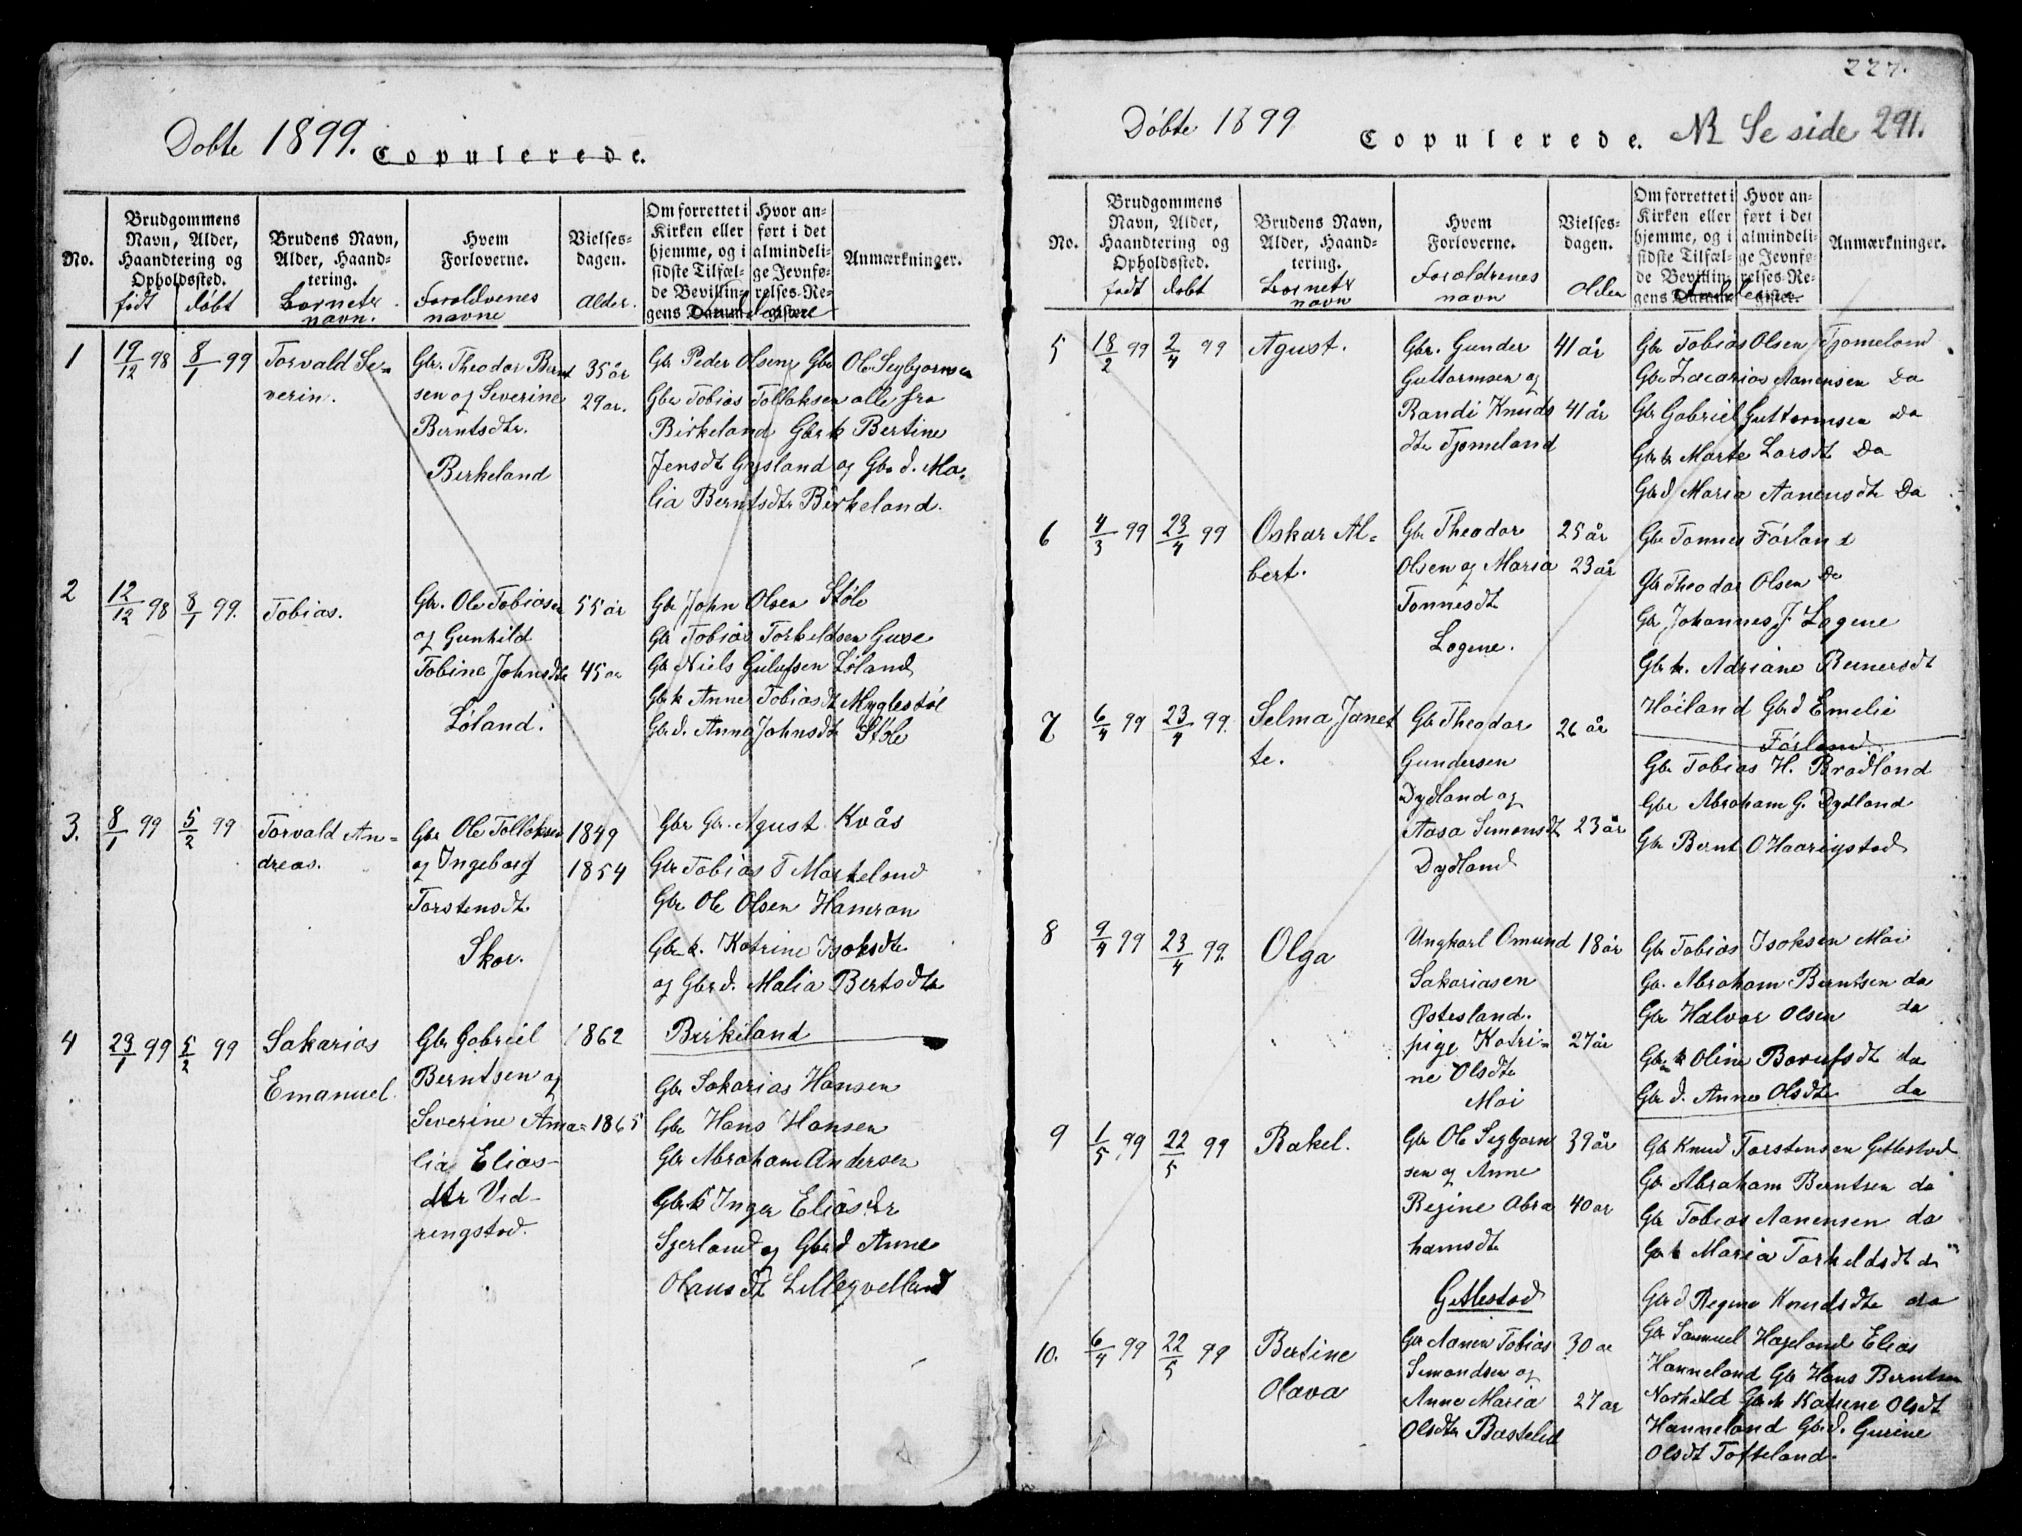 Døbte 1899. Copulerede.
No.
Brudgommens Navn, Alder, Haandtering og Opholdssted.
Brudens Navn, Alder, Haandtering.
Hvem Forloverne.
Vielsesdagen.
Om forrettet i Kirken eller hjemme, og i sidste Tilfælde Bevillingens Datum.
Hvor anført i det almindelige Jevnførelses-Register.
Anmærkninger.
født døbt Barnets navn. Forældrenes navne Alder. Fadderne
1 19/12 98 8/1 99 Torvald Se-
verin.
Gbr. Theodor Bernt
sen og Severine
Berntsdtr.
Birkeland
35 år
29 ar.
Gbr Peder Olsen Gbr Ole Segbjørnsen
Gbr Tobias Tollaksen alle fra
Birkeland Gbr k Bertine
Jensdt Gysland og Gbr d. Ma-
lia Berntsdtr Birkeland.
2 12/12 98 8/1 99. Tobias.
Gbr. Ole Tobiasen
og Gunhild
Tobine Johnsdtr
Løland.
55 år
45 ar
Gbr John Olsen Støle
Gbr Tobias Torkeldsen Guse
Gbr Niels Gulufsen Løland
Gbr k Anne Tobiasdt Myglestøl
Gbr d. Anna Johnsdt Støle
3. 8/1 99 5/2 99 Torvald An-
dreas.
Gbr Ole Tollaksen
og Ingeborg
Torstensdt.
Skor.
1849
1854
Gbr Gr. Agust Kvås
Gbr Tobias T Morkeland
Gbr Ole Olsen Hamran
Gbr k. Katrine Isaksdtr
og Gbr d. Malia Bertsdtr
Birkeland
4 23/1 99 5/2 99 Sakarias
Emanuel.
Gbr Gabriel
Berntsen og
Severine Ama-
lia Elias-
dtr Vid-
ringstad.
1862
1865
Gbr Sakarias Hansen
Gbr Hans Hansen
Gbr Abraham Andersen
Gbr k Inger Eliasdr
Sjerland og Gbr d Anne
Olausdt Lilleqvelland
227.
Døbte 1899 Copulerede. NB Se side 291.
No.
Brudgommens Navn, Alder, Haandtering og Opholdssted.
Brudens Navn, Alder, Haandtering.
Hvem Forloverne.
Vielsesdagen.
Om forrettet i Kirken eller hjemme, og i sidste Tilfælde Bevillingens Datum.
Hvor anført i det almindelige Jevnførelses-Register.
Anmærkninger.
født døbt Barnets navn Forældrenes navn Alder Fadderne
5 18/2 99 2/4 99 Agust.
Gbr. Gunder
Guttormsen og
Randi Knuds
dtr Tjomeland
41 år
41 år
Gbr Tobias Olsen Tjomeland
Gbr Zacarias Aanensen Do
Gbr Gabriel Guttormsen Do
Gbr k Marte Larsdt Do
Gbr d Maria Aanensdt Do
6 4/3 99 23/4 99 Oskar Al-
bert.
Gbr Theodor
Olsen og Maria
Tonnesdt
Logene.
25 år
23 år
Gbr Tonnes Førland
Gbr Theodor Olsen Do
Gbr Johannes J. Logene
Gbr k. Adriane Reinersdt
Høiland Gbr d Emelie
Førland
7 6/4 99 23/4 99. Selma Janet
te.
Gbr Theodor
Gundersen
Dydland og
Aasa Simonsdt
Dydland
26 år
23 år
Gbr Tobias H. Brådland
Gbr Abraham G. Dydland
Gbr Bernt O Haarigstad
8 9/4 99 23/4 99. Olga
Ungkarl Omund
Sakariasen
Østesland.
pige Katri-
ne Olsdtr
Moi
18 år
27 år
Gbr Tobias Isaksen Moi
Gbr. Abraham Berntsen do
Gbr Halvor Olsen do
Gbr k Oline Borufsdt do
Gbr d. Anne Olsdtr do
9 1/5 99 22/5 99 Rakel.
Gbr Ole Segbjørn
sen og Anne
Regine Abra
hamsdt
Getlestad
39 år
40 ar
Gbr Knud Torstensen Getlestad
Gbr Abraham Berntsen do
Gbr Tobias Aanensen do
Gbr k Maria Torkeldsdt do
Gbr d Regine Knudsdtr do
10. 6/4 99 22/5 99 Bertine
Olava
Gbr Aanen Tobias
Simondsen og
Anne Maria
Olsdtr Bastelid
30 ar
27 ar
Gbr Samuel Hageland Elias
Hanneland Gbr Hans Berntsen
Gbr k Katrine Olsdt
Hanneland Gbr d. Gurine
Olsdt Tofteland.